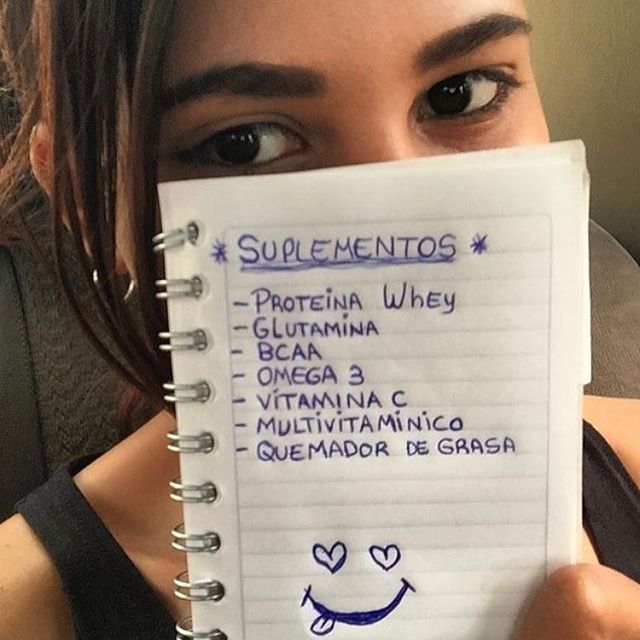 * SUPLEMENTOS *
- PROTEINA WHEY
- GLUTAMINA
- BCAA
- OMEGA 3
- VITAMINA C
- MULTIVITAMINICO
- QUEMADOR DE GRASA